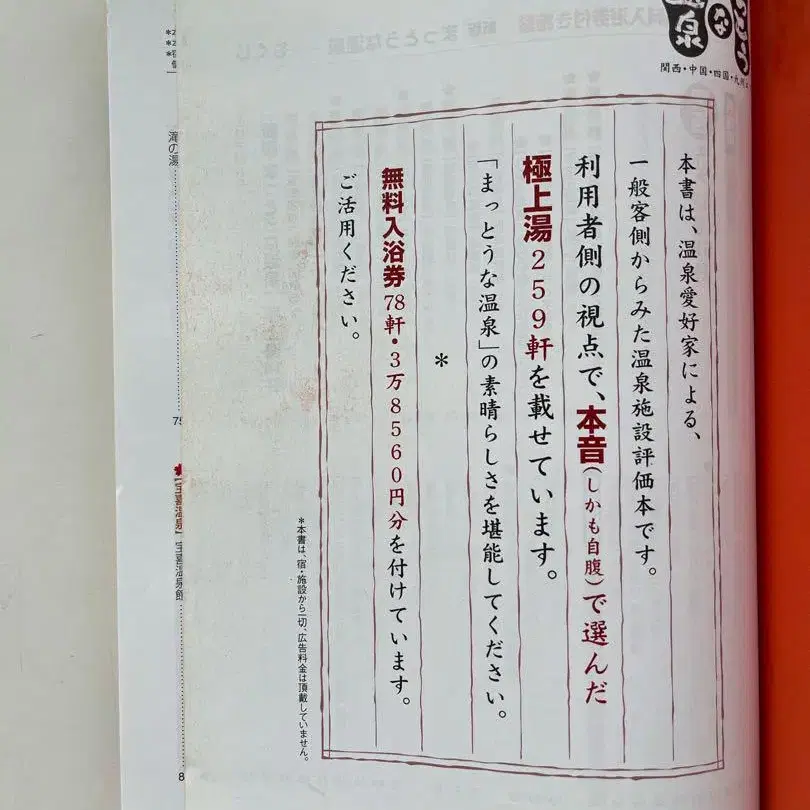 温泉
な
関西・中国・四国・九州
本書は、温泉愛好家による、
一般客側からみた温泉施設評価本です。
利用者側の視点で、本音(しかも自腹)で選んだ
極上湯259軒を載せています。
「まっとうな温泉」の素晴らしさを堪能してください。
*
無料入浴券78軒・3万8560円分を付けています。
ご活用ください。
*本書は、宿・施設から一切、広告料金は頂戴していません。
滝の湯
75
8